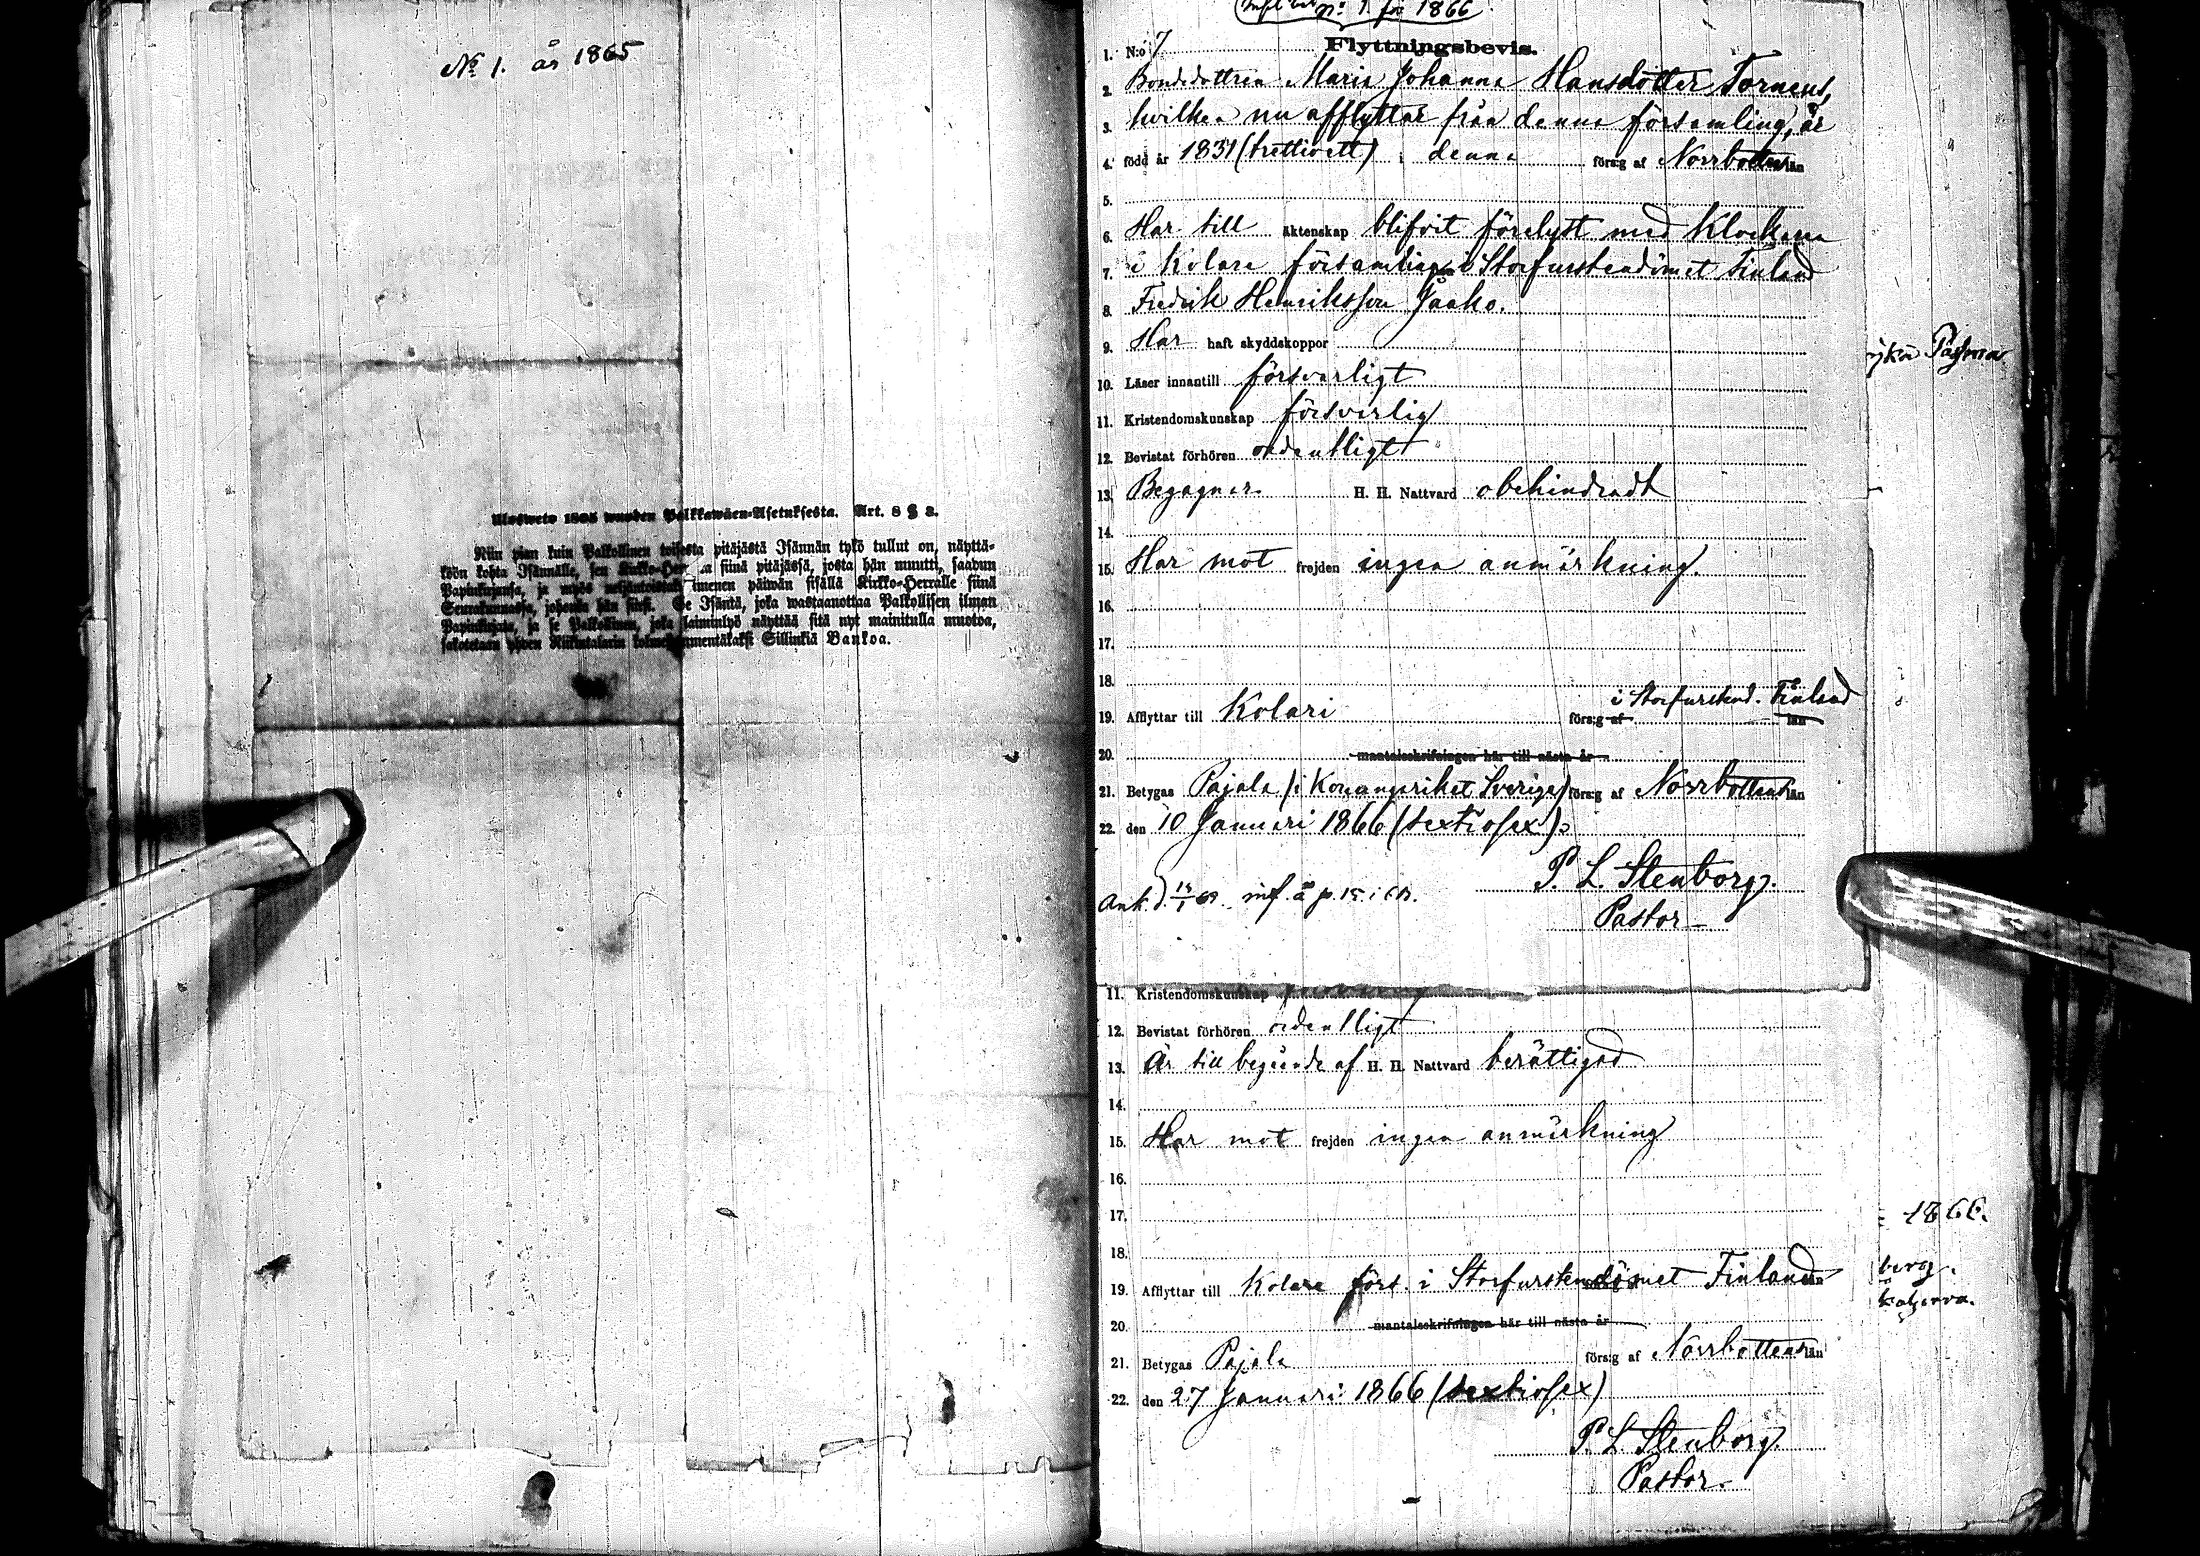 No 1. år 1865
Ulosweto 1805 wuoden Palkkawäen-Asetuksesta. Art. 8 § 3.
Niin pian kuin Palkollinen toisesta pitäjästä Isännän tykö tullut on, näyttä-
köön kohta Isännälle, sen Kirkko-Her a siinä pitäjässä, josta hän muutti, saadun
Papinkirjansa, ja myös imenen päiwän sisällä Kirkko-Herralle siinä
Seurakunnassa, johonka hän siirsi. Se Isäntä, joka wastaanottaa Palkollisen ilman
Papinkirjata, ja se Palkollinen, joka laiminlyö näyttää sitä nyt mainitulla muotoa,
sakotetaan yhden Riikintalarin mentäkaksi Sillinkiä Bankoa.
no 1. för 1866
Flyttningsbevis.
1. N:o 7
2. Bondedottren Maria Johanna Hansdotter Torneus,
3. hvilken nu afflyttar från denna församling, är
4. född år 1831 (trettioett) i denna förs:g af Norrbottens län
5.
6. Har till äktenskap blifvit förelyst med Klockaren
7. i Kolare församling i Storfurstendömet Finland
8. Fredrik Henriksson Jaako.
9. Har haft skyddskoppor
10. Läser innantill försvarligt
11. Kristendomskunskap försvarlig
12. Bevistat förhören ordentligt
13. Begagnar H. H. Nattvard obehindradt
14.
15. Har mot frejden ingen anmärkning.
16.
17.
18.
19. Afflyttar till Kolari förs:g af i Storfurstend. Finland län
20. mantalsskrifningen här till nästa år
21. Betygas Pajala (i Konungariket Sverige) förs:g af Norrbottens län
22. den 10 Januari 1866 (sextiosex):
P. L. Stenborg.
Pastor
Ank. d. inf. å p. 15.
11. Kristendomskunskap
12. Bevistat förhören ordentligt
13. Är till begående af H. H. Nattvard berättigad
14.
15. Har mot frejden ingen anmärkning
16.
17.
18.
19. Afflyttar till Kolare förs. i Storfurstendömet Finland län
20. mantalsskrifningen här till nästa år
21. Betygas Pajala förs:g af Norrbottens län
22. den 27 Januari 1866 (sextiosex)
P. L. Stenborg.
Pastor.
1866.
berg.